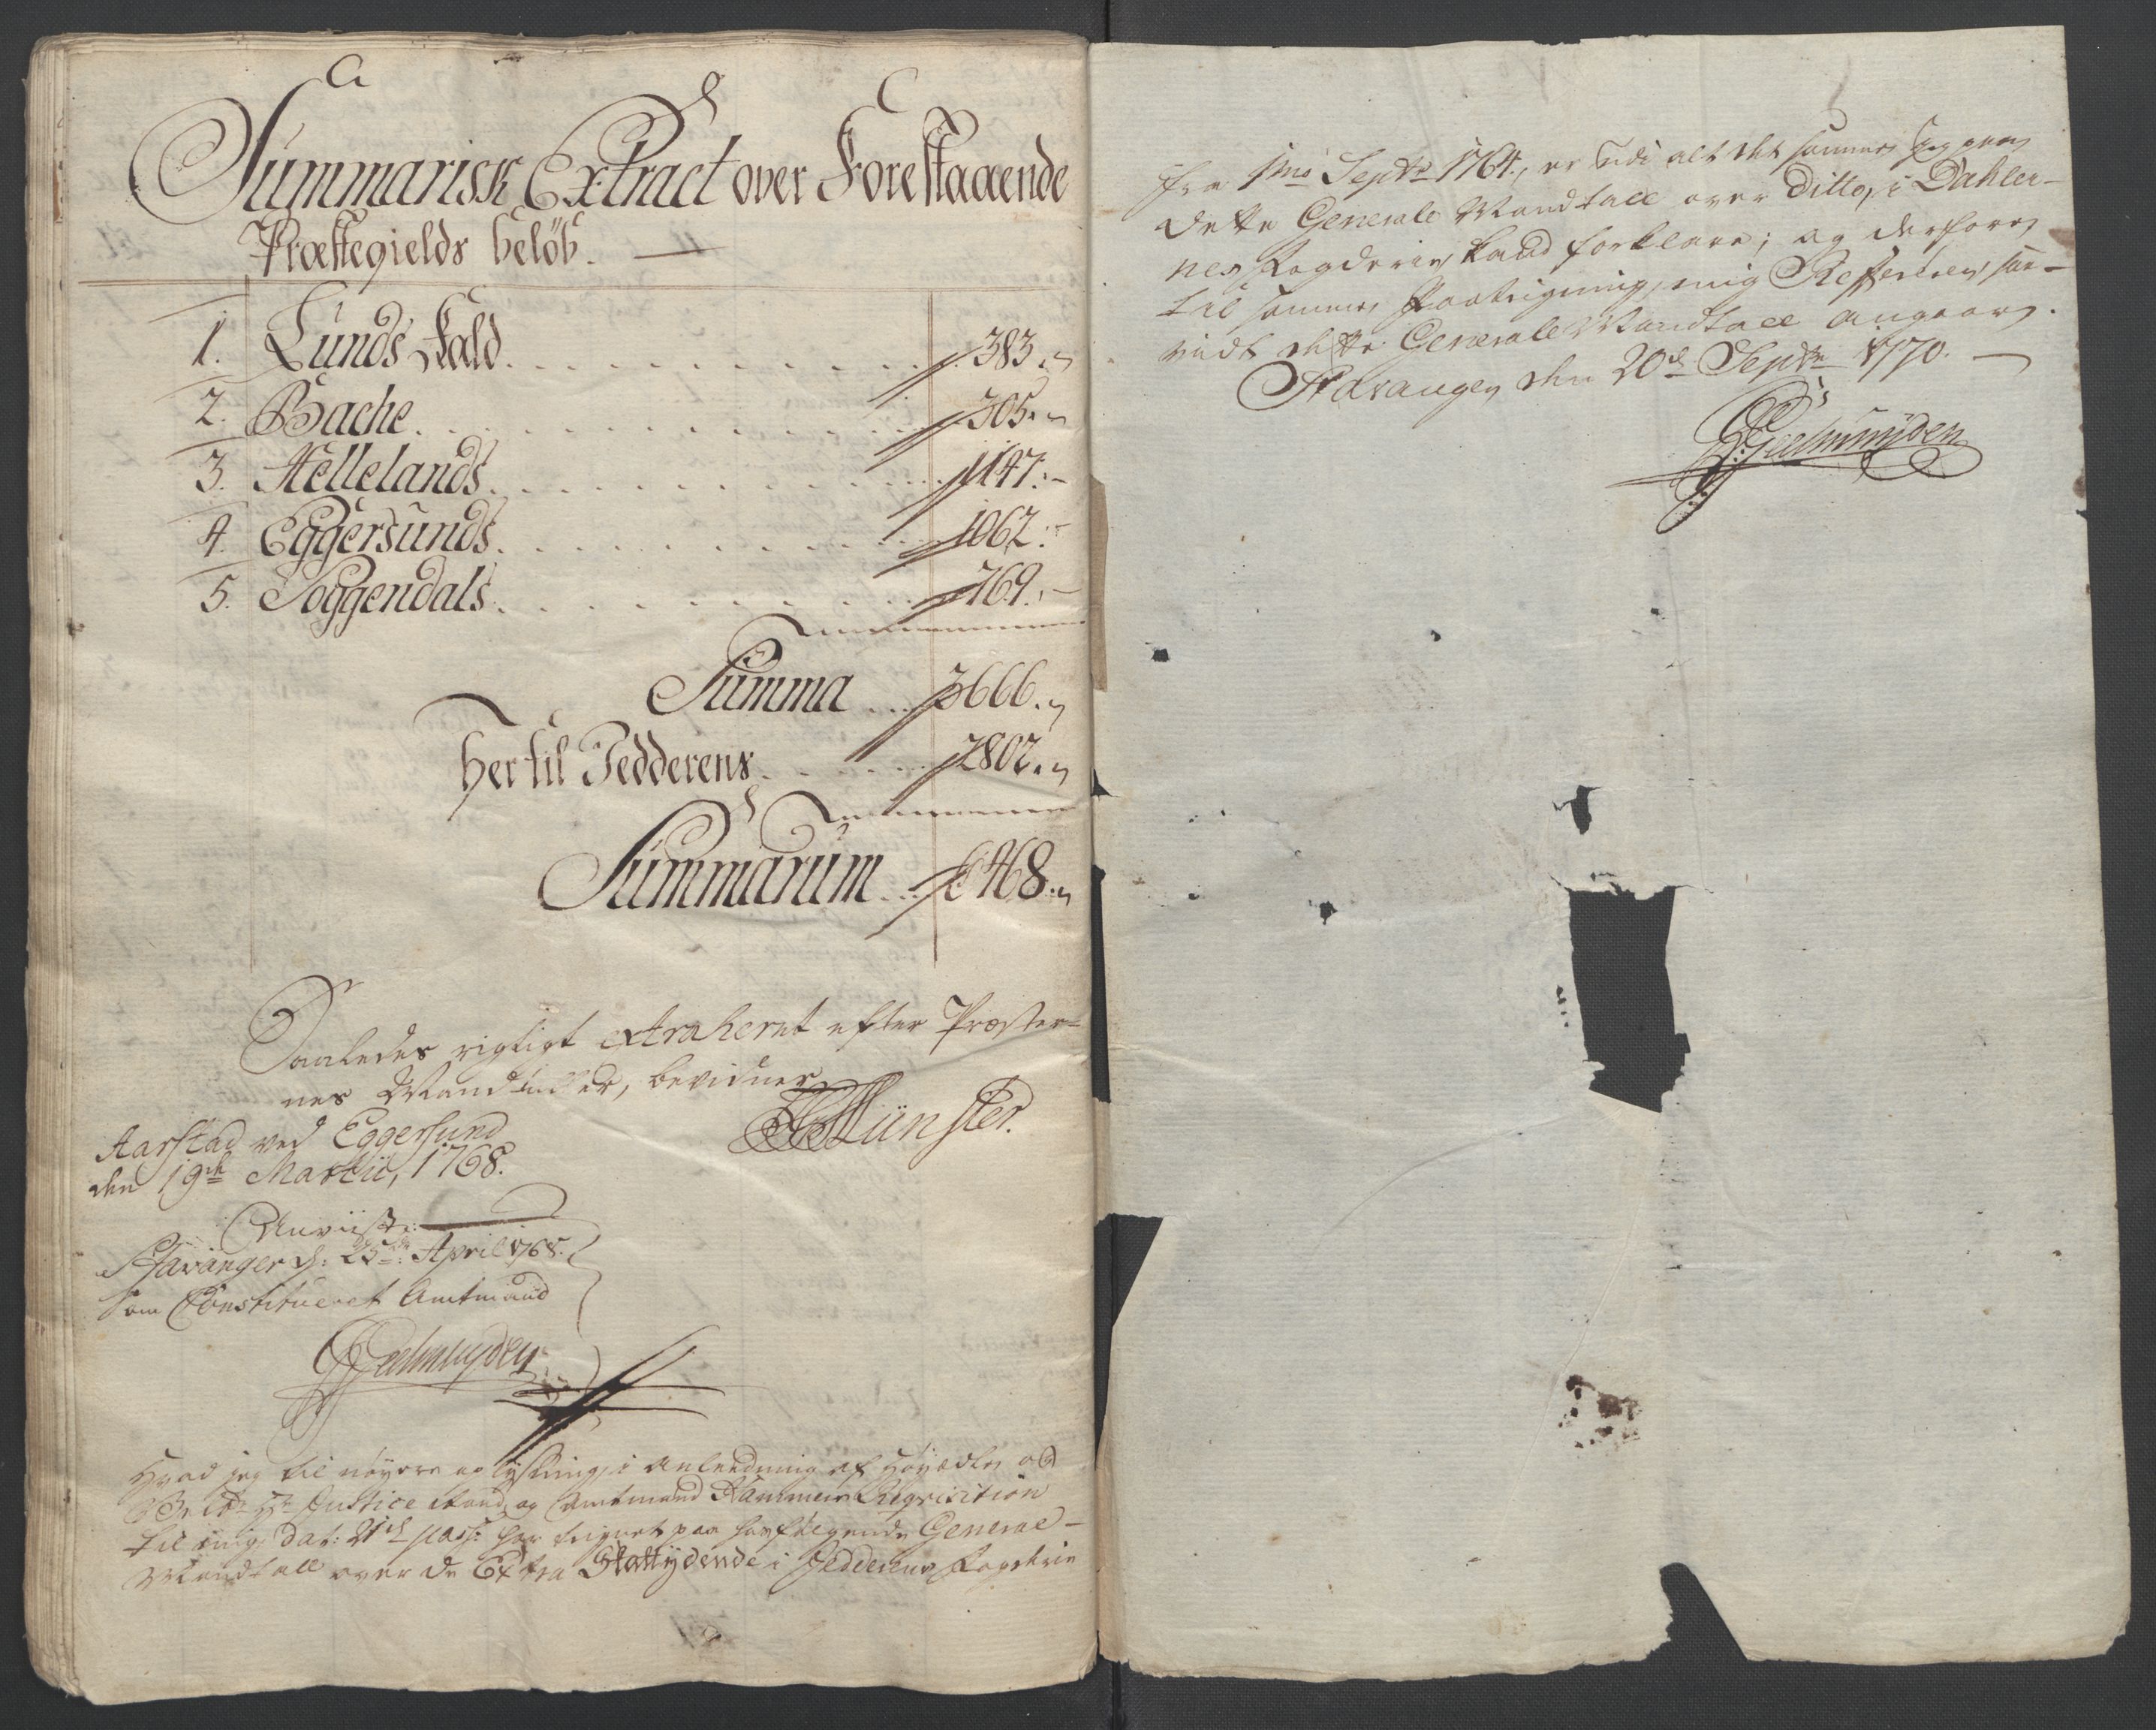 Summarisk Extract over Forestaaende
Præstegields beløb. —
1. Lunds Kald . . . 383.
2. Backe . . . 305.
3. Hellelands . . . 1147.
4. Eggersunds . . . 1062.
5. Soggendals . . . 769.
Summa . . . 3666.
Her til Jedderens . . . 2802.
Summarum . . . 6468.
Saaledes rigtigt extraheret efter Præster-
nes Mandtaller, bevidner
Aarstad ved Eggersund
den 19de Martii, 1768.
Münster.
Anviist.
Stavanger d: 25de April 1768.
som Constitueret Amtmand
Geelmuyden
Hvad jeg til nøyere oplysning, i anledning af Høyædle og
Hr Justice Raad og Amtmand Requisition
til mig, dat: 21de pass: har tegnet paa hosfølgende General-
Mandtall over de Extra Skattydende i Jedderens Fogderie
fra 1mo Septbr 1764, er udi alt det samme jeg paa
dette Generale Mandtall over Ditto, i Dahler-
nes Fogderie, kand forklare; og derfore
til samme Paategning, mig Refererer, saa-
vidt dette Generale Mandtall angaar.
Stavanger, den 20de Septbr 1770. —
Geelmuyden